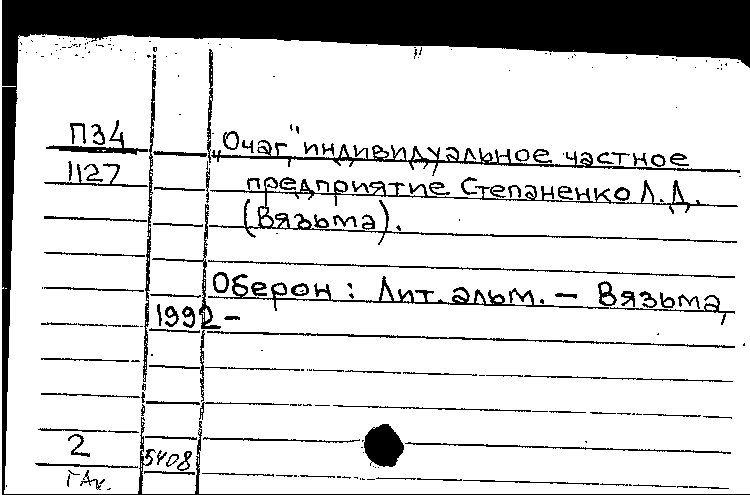 П34
1127
„Очаг," индивидуальное частное
предприятие Степаненко Л.Д.
(Вязьма).
Оберон : Лит. альм. – Вязьма,
1992 –
2
5408